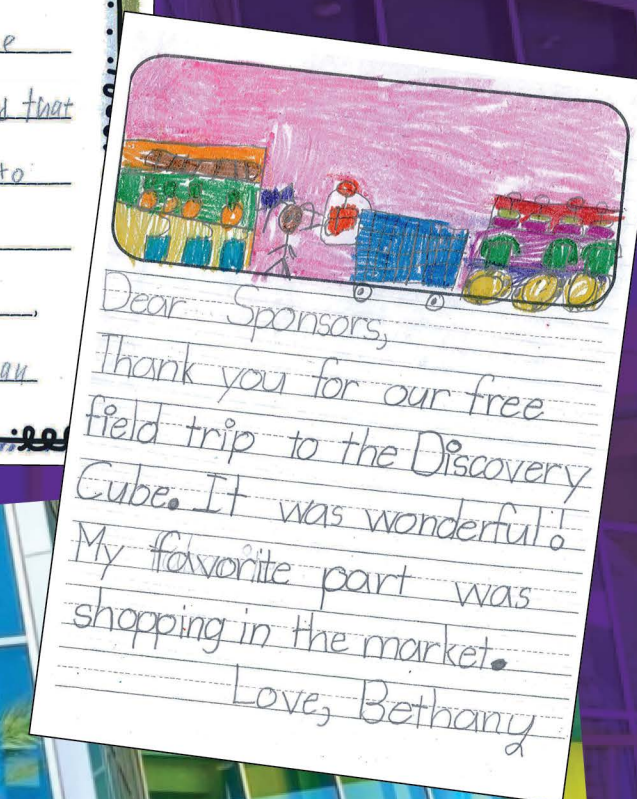 e
d that
to
an
Dear Sponsors,
Thank you for our free
field trip to the Discovery
Cube. It was wonderful!
My favorite part was
shopping in the market.
Love, Bethany